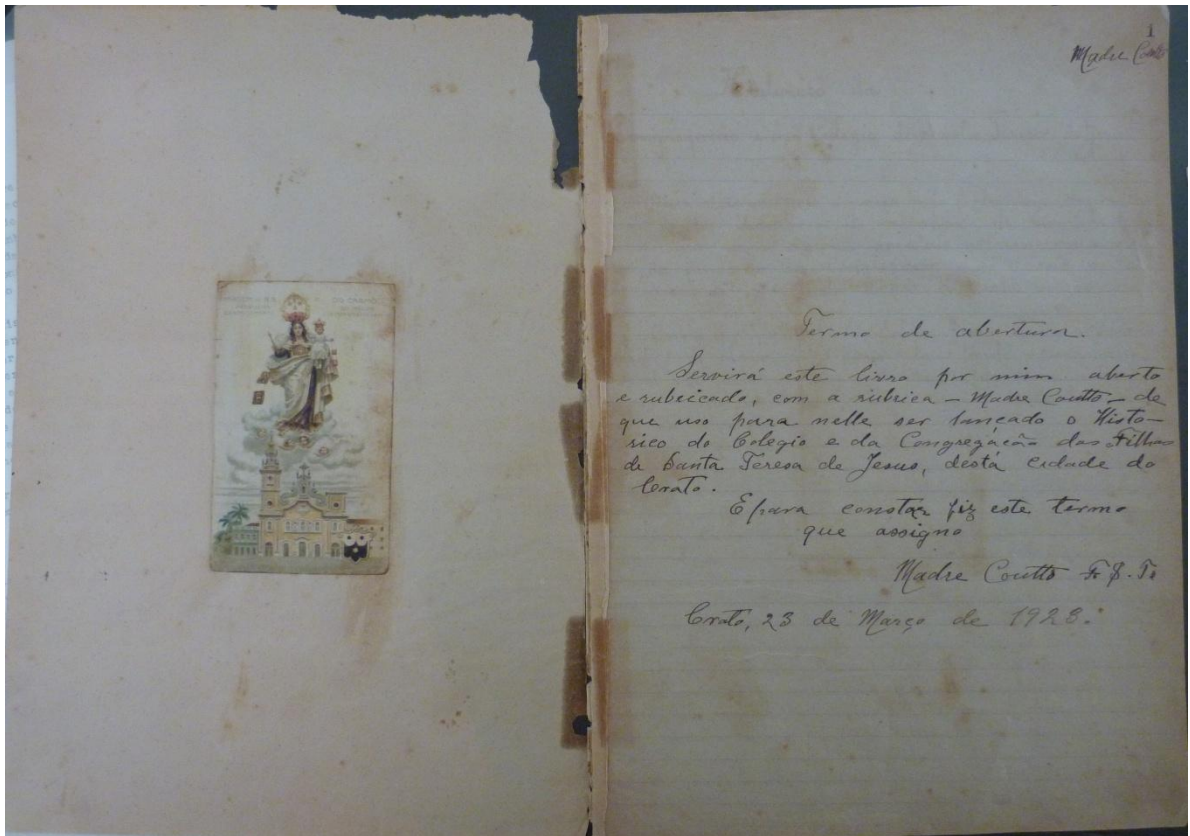 1
Madre Coutto
Termo de abertura.
Servirá este livro por mim aberto
e rubricado, com a rubrica – Madre Coutto – de
que uso para nelle ser lançado o Histo-
rico do Colegio e da Congregação das Filhas
de Santa Teresa de Jesus, desta cidade do
Crato.
E para constar fiz este termo
que assigno
Madre Coutto F. S. T.
Crato, 23 de Março de 1923.